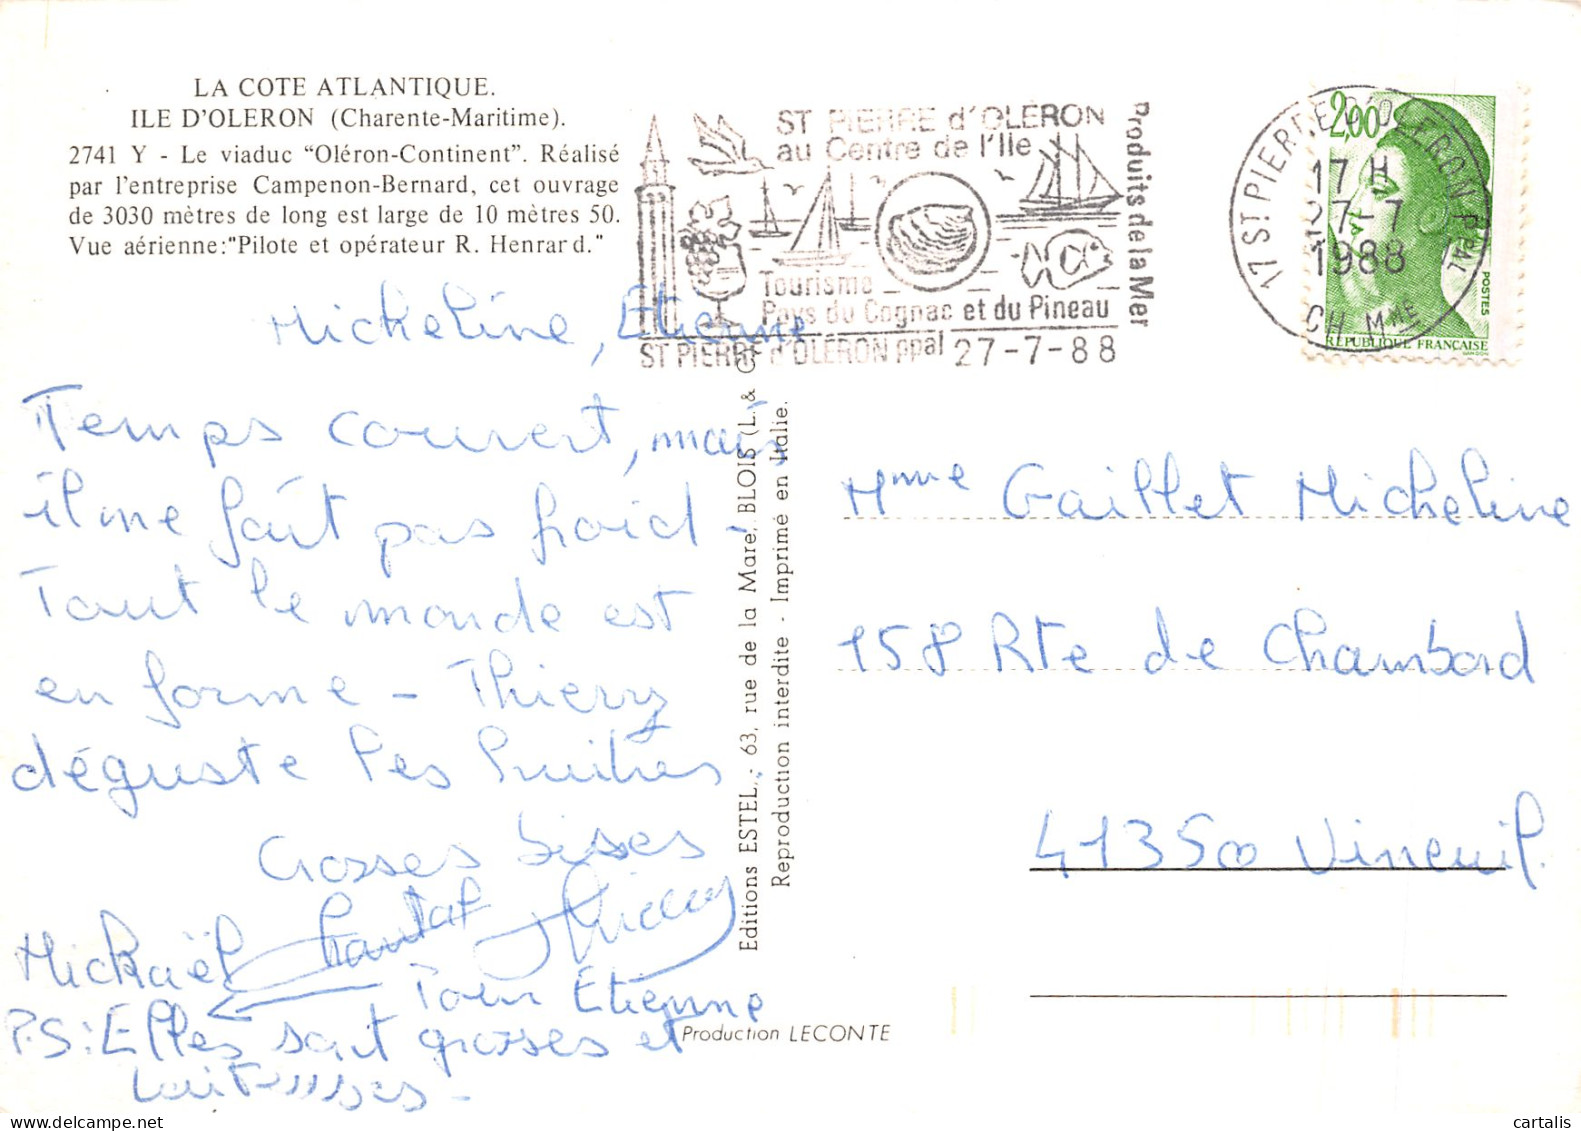 LA COTE ATLANTIQUE.
ILE D'OLERON (Charente-Maritime).
2741 Y - Le viaduc "Oléron-Continent". Réalisé
par l'entreprise Campenon-Bernard, cet ouvrage
de 3030 mètres de long est large de 10 mètres 50.
Vue aérienne:"Pilote et opérateur R. Henrard."
Micheline, Etienne
Temps couvert, mais
il ne fait pas froid -
Tout le monde est
en forme - Thierry
déguste les huitres.
Grosses bises
Mickaël Chantal Thierry
Pour Etienne
P.S: Elles sont grosses et
laiteuses -
Editions ESTEL, - 63, rue de la Mare, BLOIS (L. & C
Reproduction interdite - Imprimé en Italie.
Production LECONTE
ST PIERRE d'OLÉRON
au Centre de l'Ile
Produits de la Mer
Tourisme
Pays du Cognac et du Pineau
ST PIERRE d'OLÉRON ppal 27-7-88
17 ST PIERRE D'OLERON Pal
17 H
27-7
1988
CH MME
2,00
POSTES
RÉPUBLIQUE FRANÇAISE
GANDON
Mme Gaillet Micheline
158 Rte de Chambord
41350 Vineuil.
cartalis.com